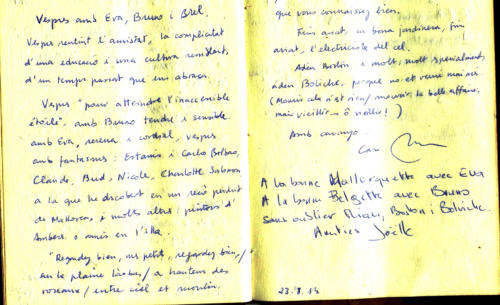 Vespres amb Eva, Bruno i Brel.
Vespres sentint l'amistat, la complicitat
d'una educació i una cultura semblant,
d'un temps passat que ens abraça.
Vespres "pour atteindre l'inaccessible
étoile", amb Bruno tendre i sensible
amb Eva, serena i cordial, vespres
amb fantasmes: Estanis i Carlo Belbao,
Claude, Bud, Nicole, Charlotte
a la que he descobert en un recó perdut
de Mallorca, i molts altres: pintors d'
Ambers o amics en l'illa.
"Regardez bien, petit, regardez bien,/
sur la plaine là-bas/ à hauteur des
roseaux/ entre ciel et moulin.
que vous connaissez bien.
Fins aviat, la bona jardinera, fins
aviat, l'electricista del cel.
Adéu Boston i molt, molt especialment,
adéu Boliche, perquè no et veuré mai més.
(Mourir cela n'est rien/ mourir, la belle affaire,/
mais vieillir... ô vieillir!)
Amb carinyo.
A la bonne Mallorquette avec Eva
A la bonne Belgette avec Bruno
sans oublier Boston i Boliche.
Amitiés Joëlle